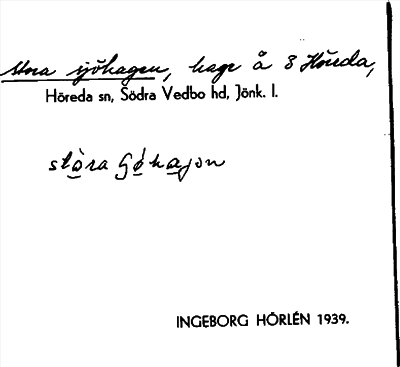 Stora sjöhagen, hage å S Höreda,
Höreda sn, Södra Vedbo hd, Jönk. l.
stòra ʃǿhagon
INGEBORG HÖRLÉN 1939.